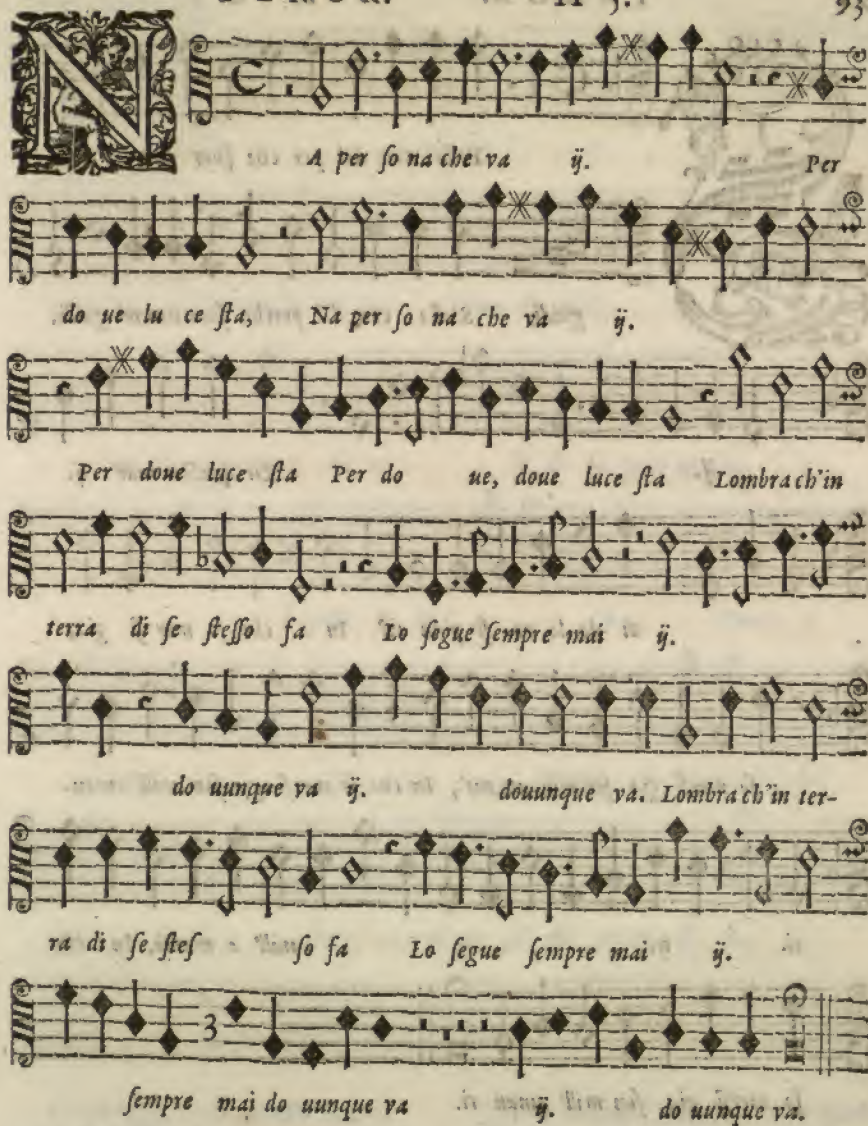 93
NA per ſo na che va ij. Per
do ue lu ce ſta, Na per ſo na che va ij.
Per doue luce ſta Per do ue, doue luce ſta Lombra ch'in
terra di ſe ſteſſo fa Lo ſegue ſempre mai ij.
do uunque va ij. douunque va. Lombra ch'in ter-
ra di ſe ſteſ ſo fa Lo ſegue ſempre mai ij.
3
ſempre mai do uunque va ij. do uunque va.